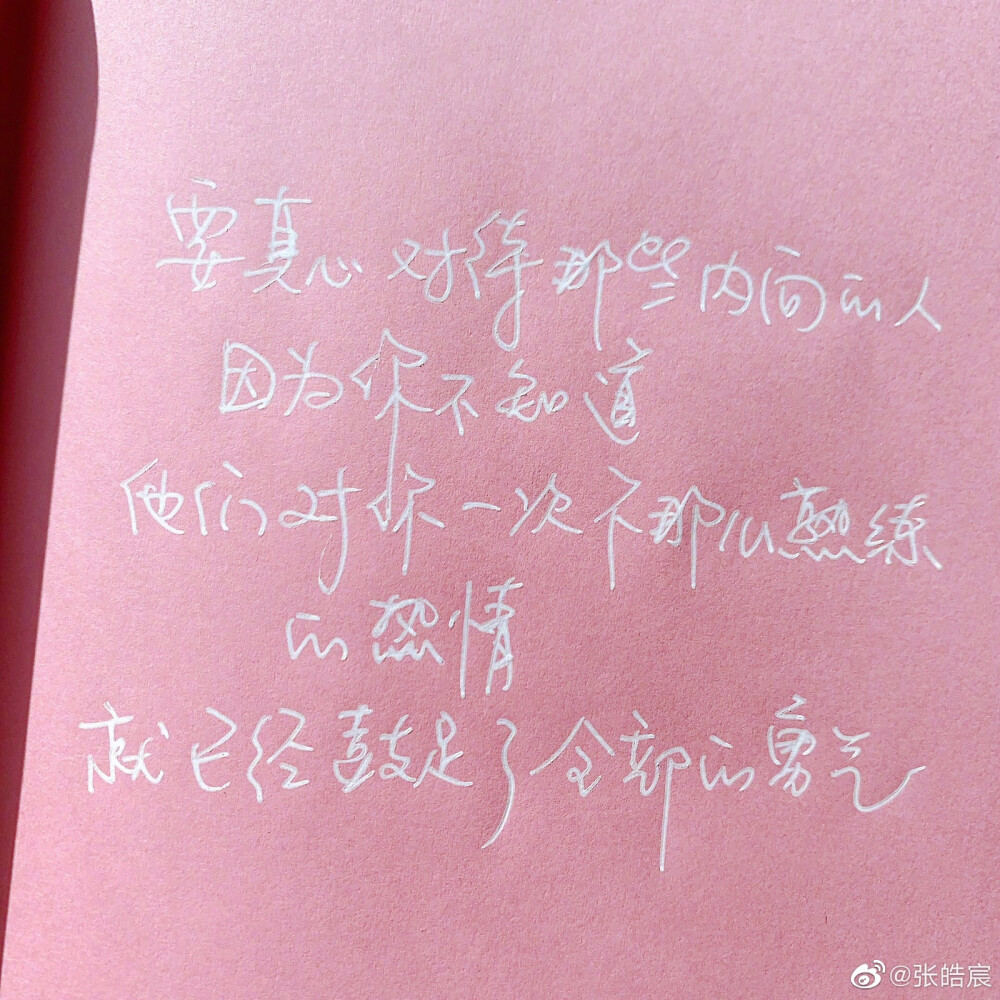 要真心对待那些内向的人
因为你不知道
他们对你一次不那么熟练
的热情
就已经鼓足了全部的勇气
@张皓宸